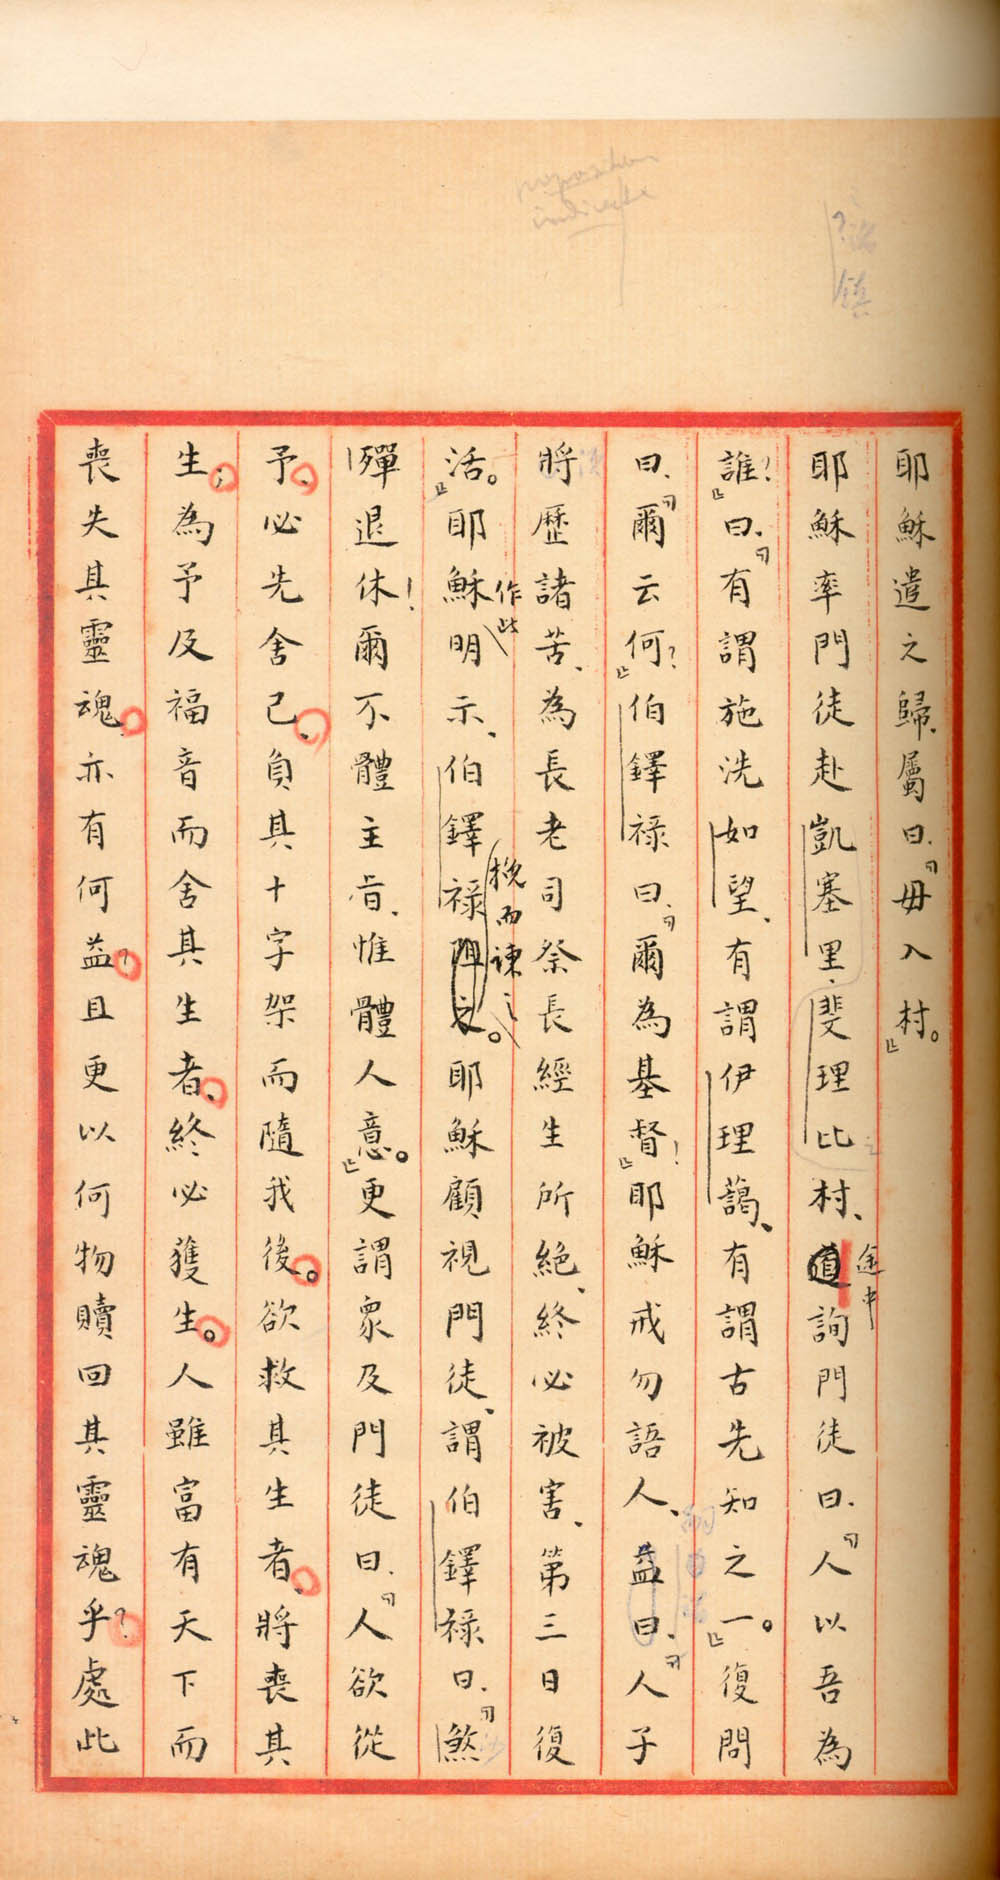 耶穌遣之歸、屬曰、「毋入村。」
耶穌率門徒赴凱塞里、斐理比村、途中詢門徒曰、「人以吾為
誰?」曰、「有謂施洗如望、有謂伊理藹、有謂古先知之一。」復問
曰、「爾云何?」伯鐸祿曰、「爾為基督!」耶穌戒勿語人、益曰、「人子
將歷諸苦、為長老司祭長經生所絕、終必被害、第三日復
活。」耶穌作此明示、伯鐸祿挽而諫之。耶穌顧視門徒、謂伯鐸祿曰、「煞
殫退休!爾不體主旨、惟體人意。」更謂眾及門徒曰、「人欲從
予、必先舍己、負其十字架而隨我後。欲救其生者、將喪其
生;為予及福音而舍其生者、終必獲生。人雖富有天下而
喪失其靈魂、亦有何益?且更以何物贖回其靈魂乎?處此
proposition
indirecte
鎮